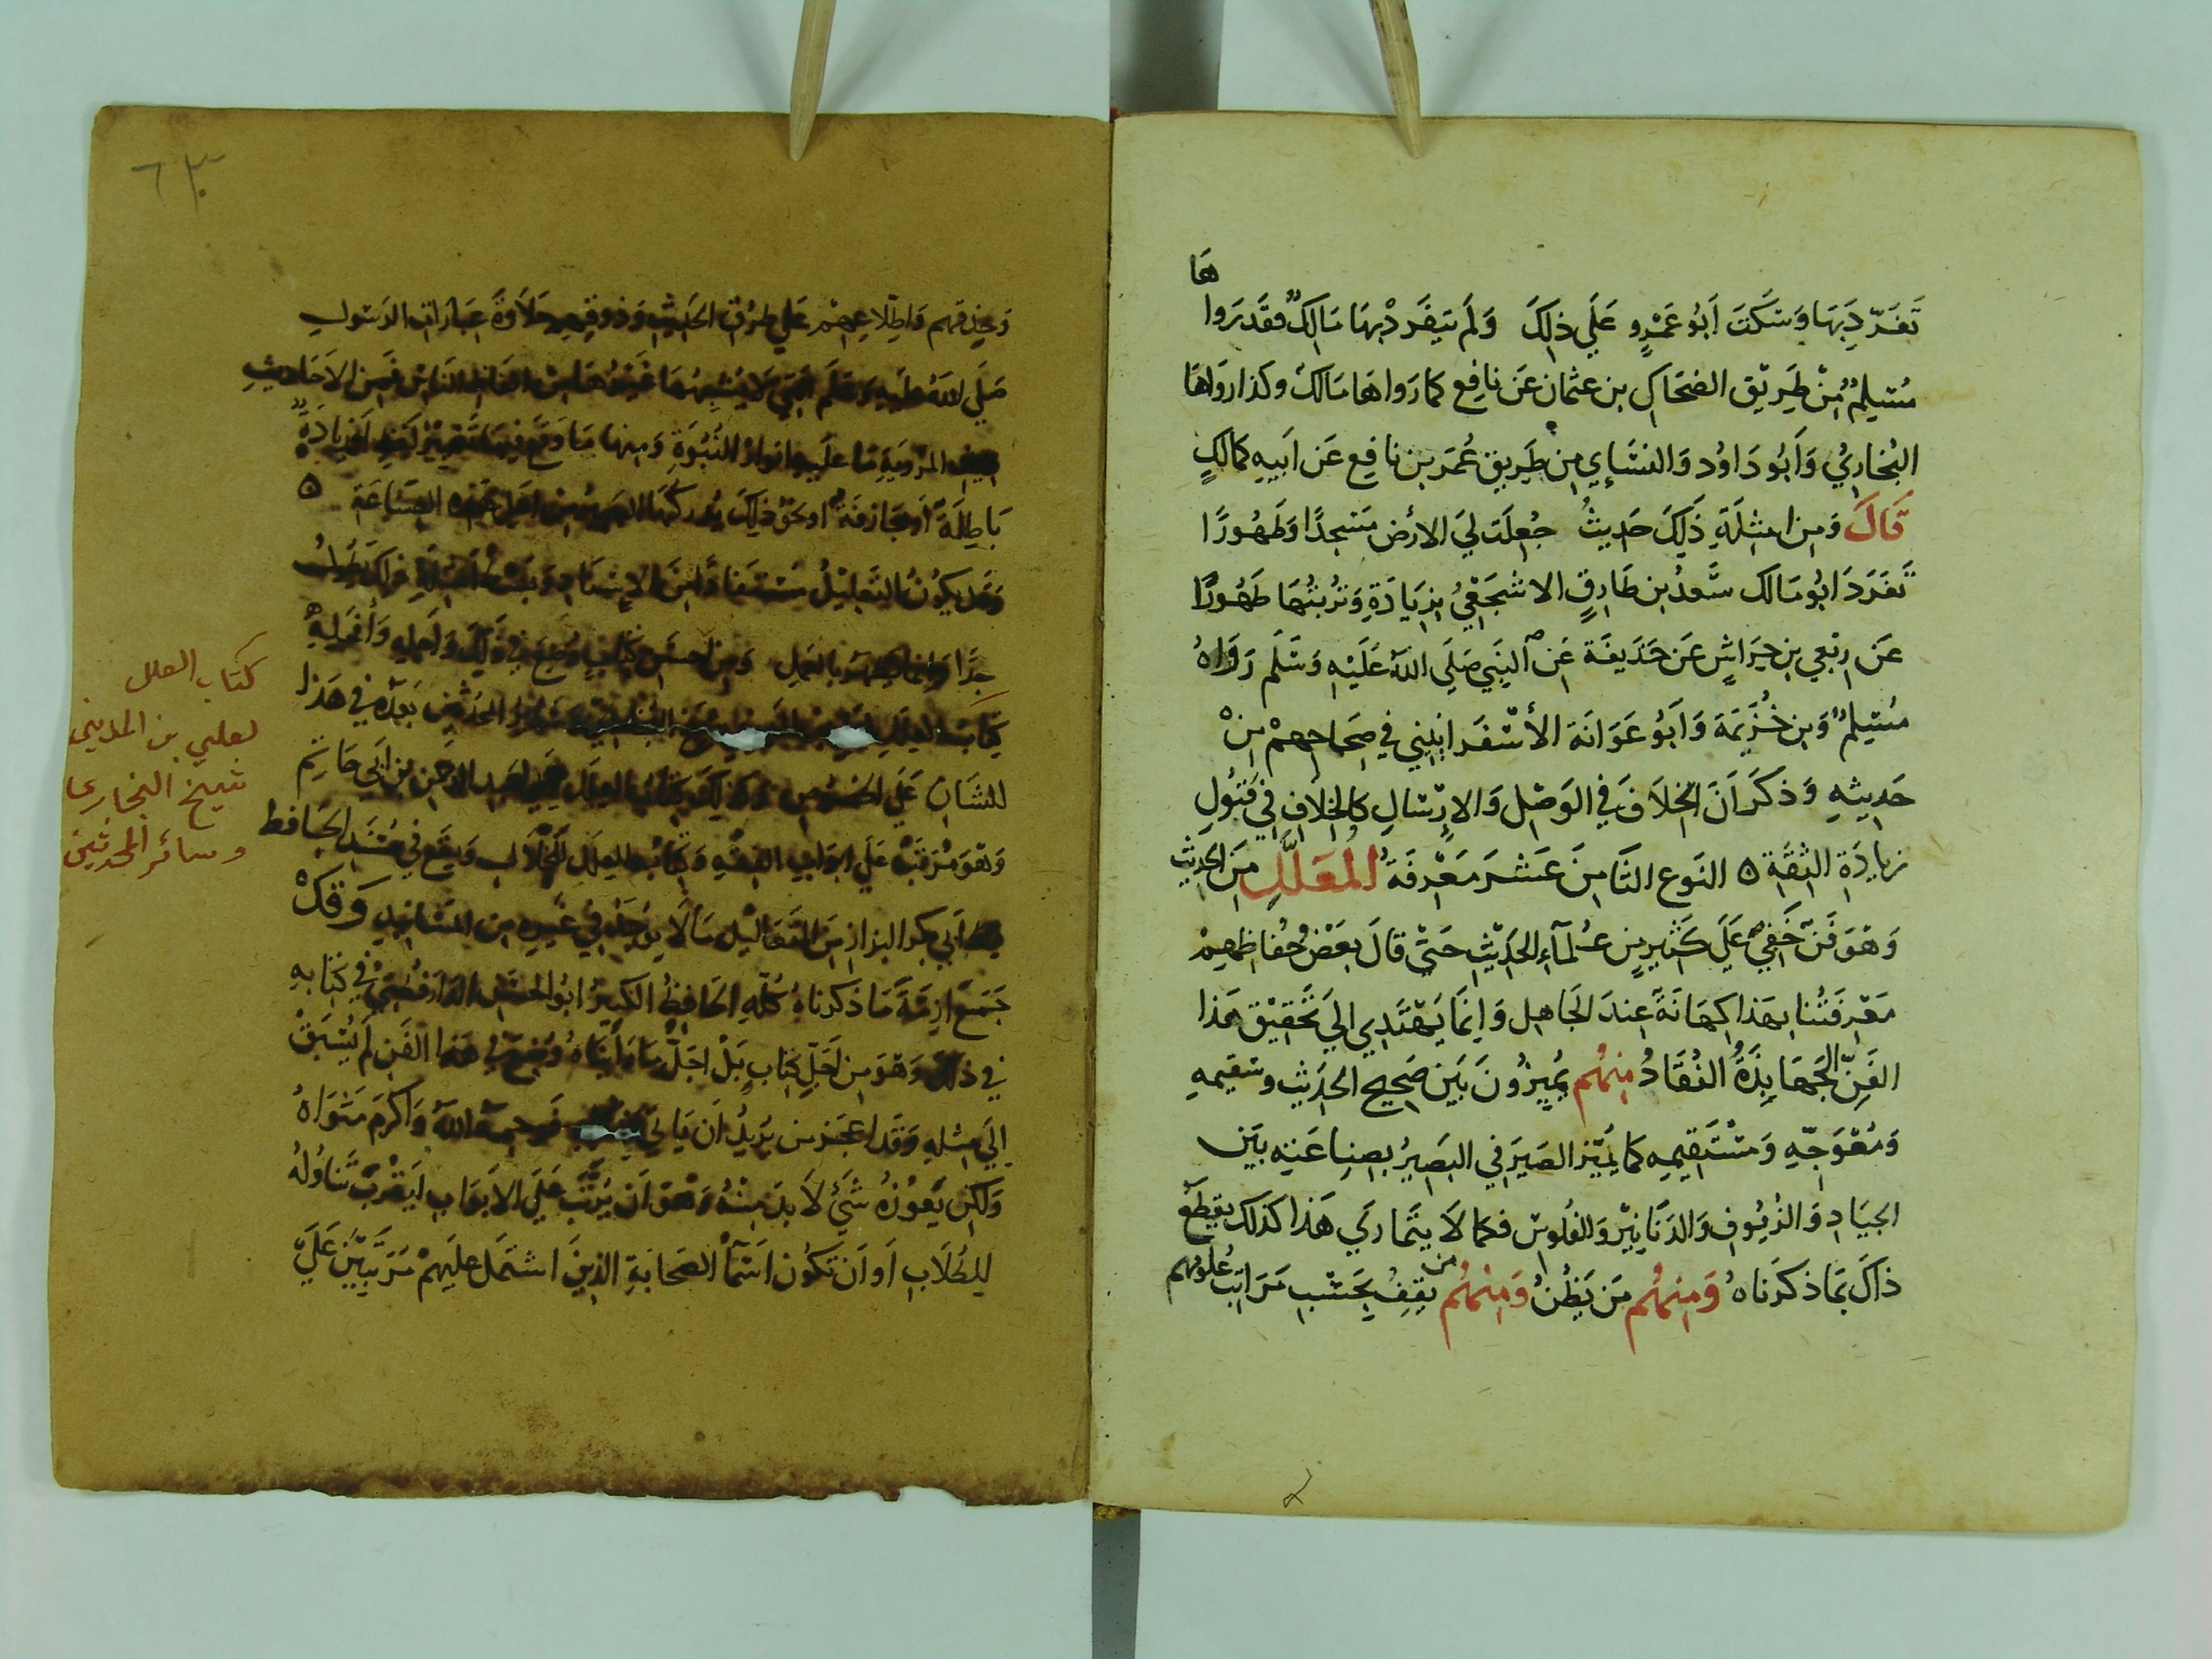 تَفَرّدَ بِهَا وَسَكَتَ اَبُو عَمْرٍو عَلَي ذلِكَ وَلَم يَتَفَرد بِهَا مَالِكٌ فَقَد رَوا
هَا
مُسْلِمٌ مِنْ طَرِيْقِ الضحَاكِ بن عثمان عَن نافِع كما رَواهَا مَالك وكذا رواهَا
البُخارِيُ وَاَبُو دَاوُد وَالنسَاي مِن طَرِيقِ عُمَر بن نافِع عَن اَبيهِ كَمالكٍ
قَالَ وَمِن امثِلَةِ ذَلِكَ حَدِيثُ جُعِلَت لِيَ الارض مَسْجدًا وَطَهُورًا
تَفَرَدَ ابُو مَالك سَّعدُ بن طَارِقٍ الاشجَعِيُ بزِيَادَةِ وَتُربَتُهَا طَهُورًا
عَن رِبْعي بن حِرَاشٍ عَن حُذَيفَة عَن النَبي صَلَي اللهُ عَلَيْهِ وَسَلَم رَوَاهُ
مُسْلِمٌ وَبن خُزَيمَةَ وَاَبُو عَوَانَة الأسْفَرايِنِي في صحَاحِهمْ مِنْ
حَدِيثِهِ وَذكَرَ اَنَ الخلافَ فَي الوَصْل وَالإرْسَالِ كالخِلافِ فِي قبُولِ
زيادَةِ الثِقَةِ ه النَوع الثَّامنَ عَشَرَ مَعْرِفَةُ المُعَلَّلِ مِنَ الحَدِيث
وَهُوَ فَنٌّ خَفِيٌ عَلَي كَثيرٍ مِن عُلمآءِ الحَدِيْثِ حَتَيْ قالَ بعَضُ حُفاظِهِم
مَعْرِفَتُنا بهَذا كِهَانَةٌ عِندَ الجَاهِل وَانِمَا يَهْتَدِي اِليَ تَحقِيْق هَذا
الفَنِّ الجَهَابِذَةُ النُقَادُ مِنهُم يمَيِزُونَ بَينَ صَحِيح الحَدِيث وسَقِيمهِ
وَمُعْوَجِّهِ وَمسْتَقِيمِه كما يُمَيّز الصَيرَفي البَصِيرُ بصِناعَتِه بَيَن
الجيَادِ وَالزُيُوفِ وَالدَنَانِيْرِ وَالفلُوسْ فكما لا يتَمارَي هَذا كذلَك يقطَعُ
ذاكَ بمَا ذكَرنَاهُ وَمِنهُم مَن يَظُنُ وَمِنْهُم من يقِفُ بحَسْب مَرَاتِب عُلُومِهم
٦٣
وَحِذقِهم وَاطِّلاعِهِم عَلي طرُقِ الحَدِيْثِ وَذوقِهِم حَلاَوَةَ عِبَارَاتِ الرَسُولِ
صَلَي اللهُ عَلَيهِ وَسَلَم الَتِي لاَ يُشبِهُهَا غَيرُهَا مِنْ الفاظِ النَاسْ فمِنَ الاَحَاديثِ
المَرويَةِ مَا عَليهِا انوَارُ النُبُوَةِ وَمنها مَا وَقَع فيهَا تَغيِيرُ لَفظٍ اَو زيَادَةٌ
بَاطِلَةٌ اَو مجَازفَةٌ اَو نحوُ ذلِكَ يُدركُهَا البَصِيرُ مِن اهَل هَذِه الصِنَاعَةِ ه
وَقَد يكوُن التَعلِيْلُ مُسْتَفادًا مِنَ الإسنَادِ وَبَسْطُ اَمثِلَةِ ذَلكَ يَطُولُ
جِدًا وَانمَا يَظهَرُ بالعَملِ وَمِن اَحسَنِ كتَابٍ وُضِعَ في ذَلِكَ وَاَجَلِهِ وَاَفحَلِهِ
كِتَابُ العِلَلِ لعَلي بن المَدِيني شيخ البُخاري وسَائِرُ المحَدثينَ بَعدَهُ في هَذا
الشَانِ عَلَي الخُصُوصِ وكذلِكَ كِتَابُ العِلَل لعَبدِ الرَحمن بن اَبي حَاتِم
وَهْوَ مُرَتَّبٌ عَلَي ابوَابِ الفِقهِ وَكِتَابُ العِلَلِ للخلاّل وَيقَع في مُسْنَدِ الحَافظ
اَبي بكر البزارِ مِنَ التَعَالِيْل مَا لاَ يوُجَدُ في غَيرِه مِن المَسَانِيدِ وَقَدْ
جَمَعَ ازِمَّةَ مَا ذكرنَاهُ كُلِّهِ الحَافِظُ الكَبِيرُ ابُو الحَسَنِ الدَارقُطنِيُ في كِتَابهِ
في ذَلكَ وَهْوَ مِن اَجَلِّ كِتابٍ بَلْ اَجَلُّ مَا رَأينَاهُ وُضِعَ في هَذا الفَنِ لَم يُسْبَقْ
اِلَي مِثلِهِ وَقَد اعجَزَ مَن يُرِيدُ اَن يَاتيَ بَعدَهُ فَرَحِمَهُ اللهُ وَاَكرَمَ مَثوَاهُ
وَلكِن يَعُوزُهُ شَئٌ لاَ بدّ مِنْهُ وَهْوَ اَن يُرَتَّب عَلَي الاَبوَابِ لِيَقْرُبَ تَناوُلُهُ
للِطُلاَّبِ اَو اَن تكوُن اَسمآءُ الصَحَابَةِ الذِينَ اشتمَل عَليَهِمْ مُرَتَّبِيْنَ عَلَيَ
كتاب العلل
لعلي بن المديني
شيخ البخاري
وسائر المحدثين